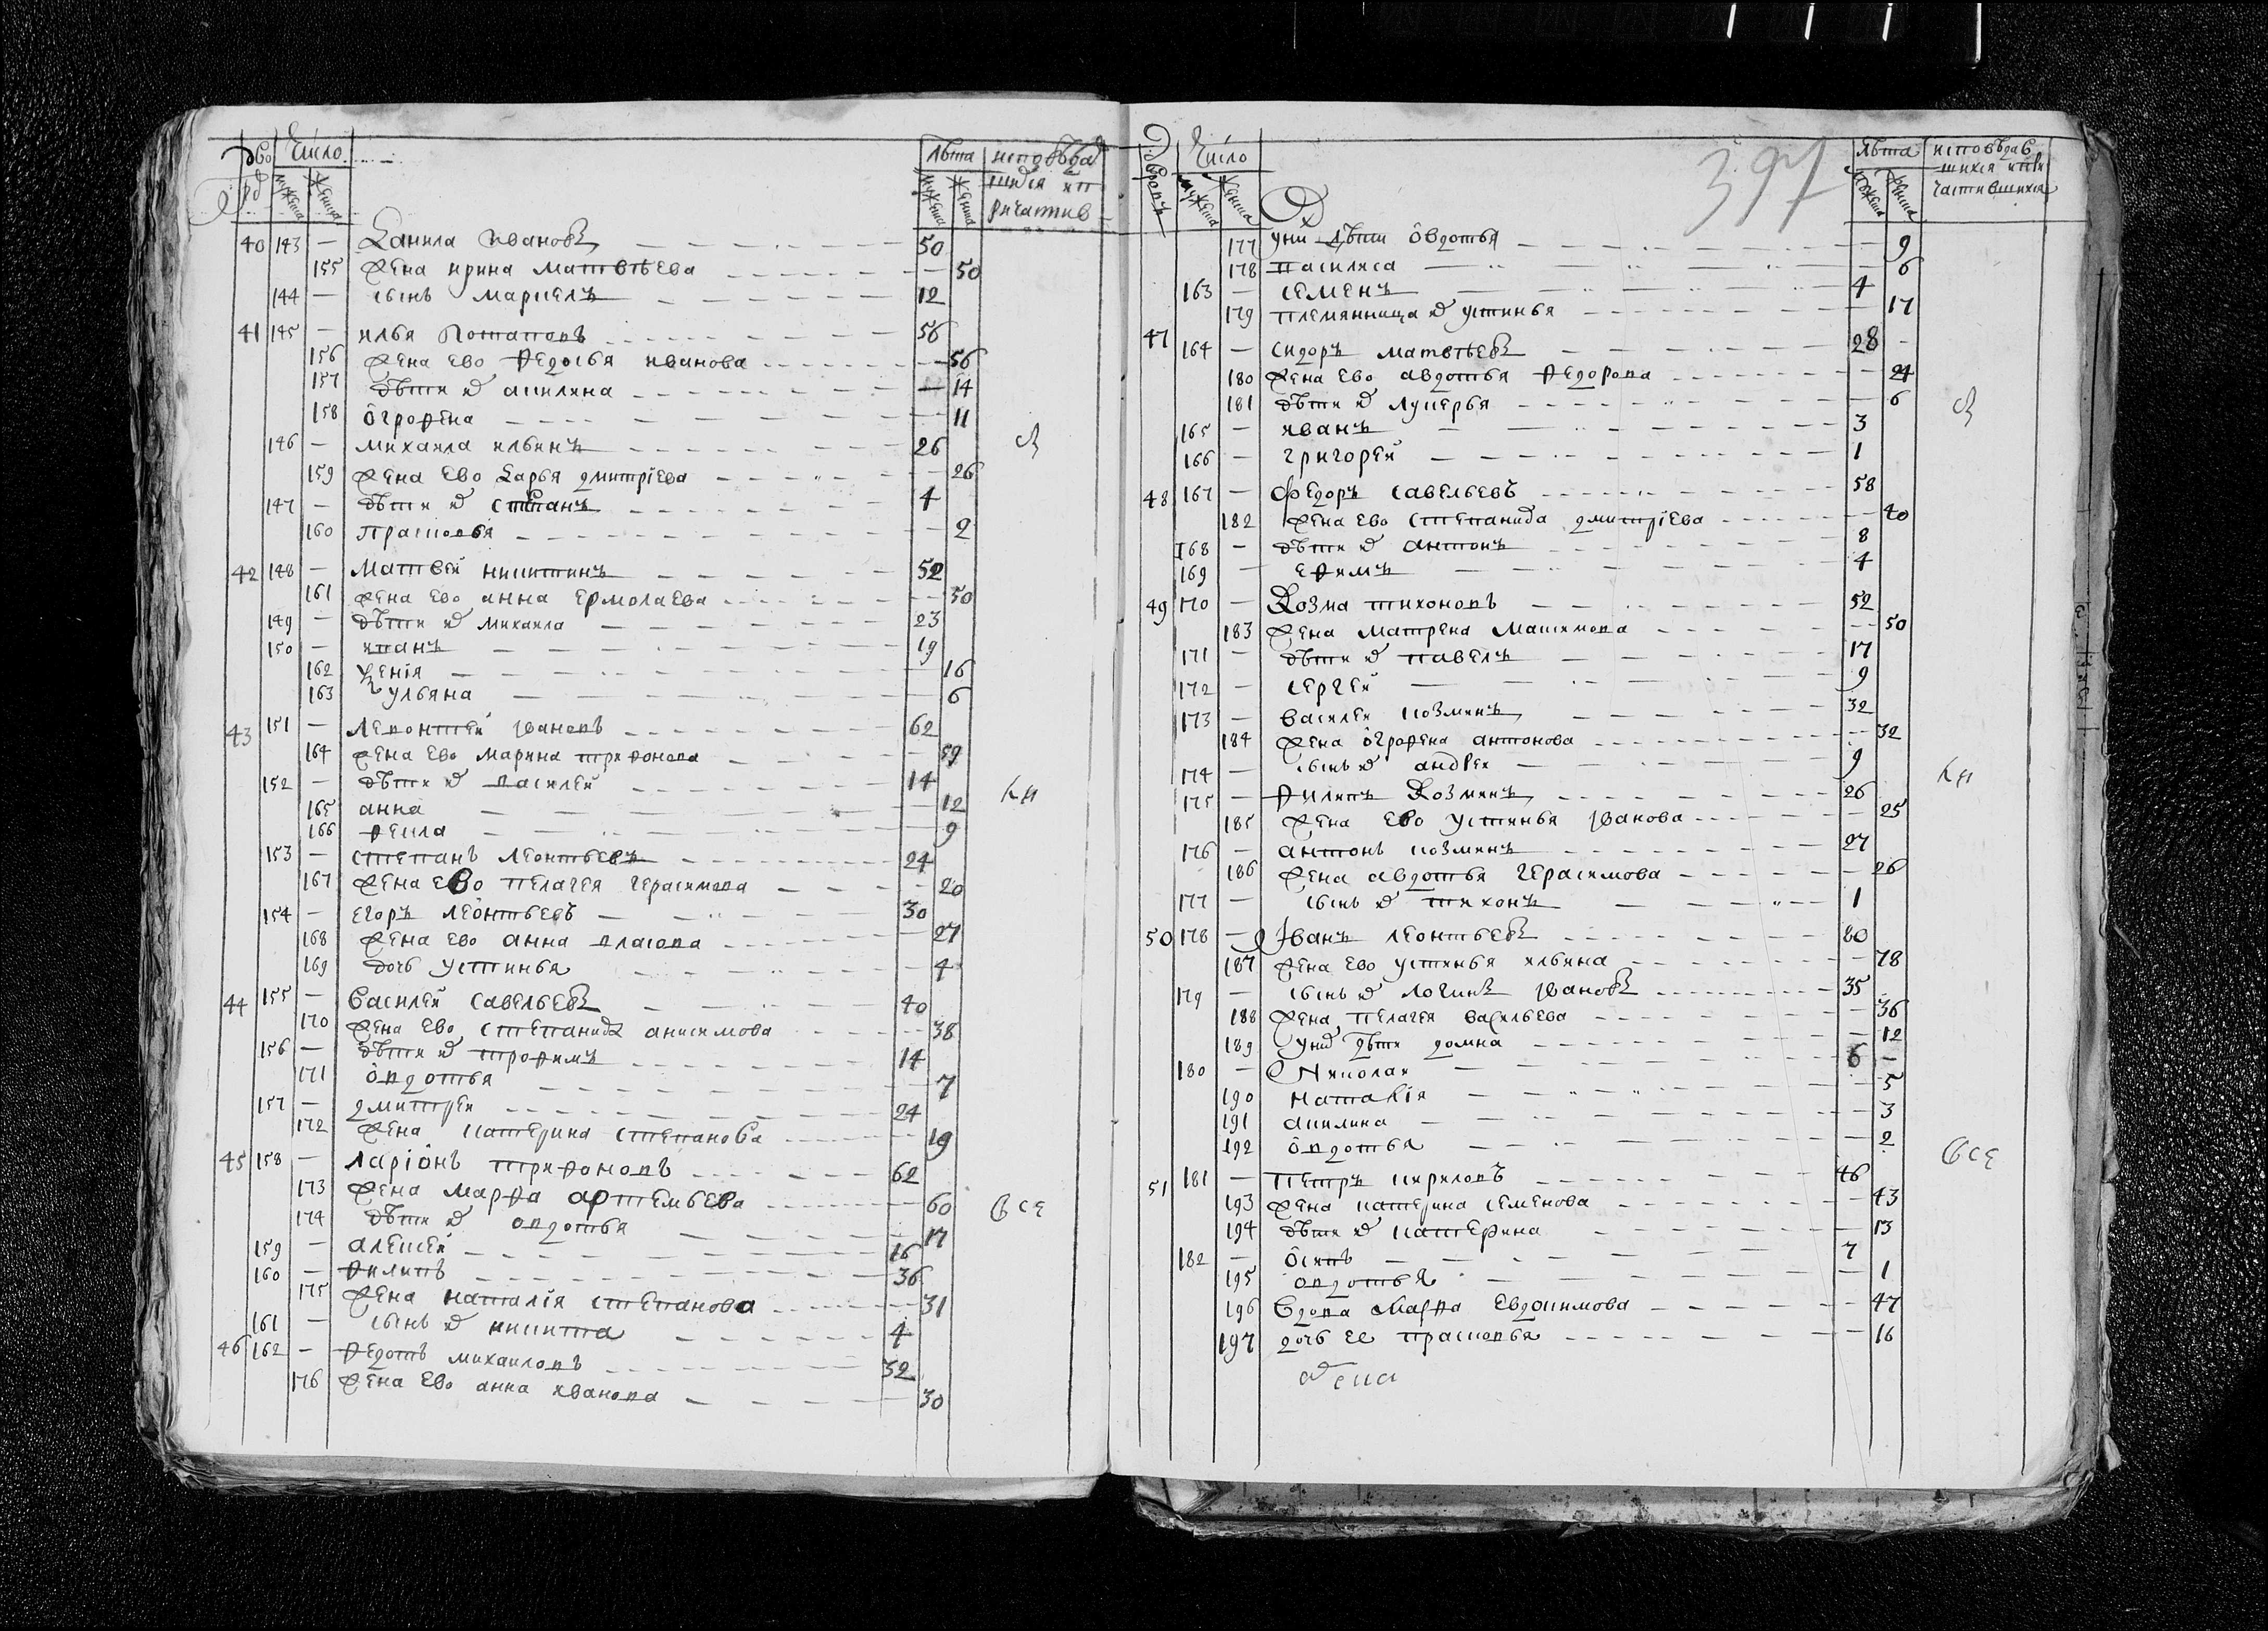 Дво Число Лѣта исповѣда
рд мужеска женска мужеска женска шихся и п
ричастив
40 143 — Данила Ивановъ 50
155 жена ирина матвѣева 50
144 — сынъ маркелъ 12
41 145 — илья Потаповъ 56
156 жена ево федосья иванова 56
157 дѣти их акилина 14
158 огрофена 11
146 — михаила ильинъ 26
159 жена ево Дарья дмитріева 26
147 — дѣти их степанъ 4
160 прасковья 2
42 148 — Матвей никитинъ 52
161 жена ево анна ермолаева 50
149 — дѣти их михаила 23
150 — иванъ 19
162 ксенія 16
163 ульяна 6
43 151 — Левонтей Ивановъ 62
164 жена ево марина трифонова 59
152 — дѣти их василей 14
165 анна 12
166 фекла 9
153 — степанъ леонтьевъ 24
167 жена ево пелагея герасимова 20
154 — егоръ леонтьевъ 30
168 жена ево анна власова 27
169 дочь устинья 4
44 155 — Василей савельевъ 40
170 жена ево степанида анисимова 38
156 — дѣти их трофимъ 14
171 овдотья 7
157 — дмитрей 24
172 жена катерина степанова 19
45 158 — ларіонъ трифоновъ 62
173 жена марфа артемьева 60
174 дѣти их овдотья 17
159 — алексей 16
160 — филипъ 36
175 жена наталія степанова 31
161 — сынъ их никита 4
46 162 — федотъ михаиловъ 32
176 жена ево анна иванова 30
все
Дворовъ Число 397 Лѣта исповѣдав
мужеска женска мужеска женска шихся и при
частившихся
177 у них дѣти овдотья 9
178 василиса 6
163 — семенъ 4
179 племянница их устинья 17
47 164 — сидоръ матвѣевъ 28
180 жена ево авдотья федорова 24
181 дѣти их лукерья 6
165 — иванъ 3
166 — григорей 1
48 167 — Федоръ савельевъ 58
182 жена ево степанида дмитріева 40
168 — дѣти их антонъ 8
169 — ефимъ 4
49 170 — Козма тихоновъ 52
183 жена матрена максимова 50
171 — дѣти их павелъ 17
172 — сергей 9
173 — василей козминъ 32
184 жена огрофена антонова 32
174 — сынъ их андрей 9
175 — филипъ Козминъ 26
185 жена ево устинья Иванова 25
176 — антонъ козминъ 27
186 жена авдотья герасимова 26
177 — сынъ их тихонъ 1
50 178 — Иванъ леонтьевъ 80
187 жена ево устинья ильина 78
179 — сынъ их логинъ Ивановъ 35
188 жена пелагея васильева 36
189 у них дѣти домна 12
180 — Николай 6
190 наталія 5
191 акилина 3
192 овдотья 2
51 181 — петръ кириловъ 46
193 жена катерина семенова 43
194 дѣти их катерина 13
182 — осипъ 7
195 овдотья 1
196 вдова Марфа евдокимова 47
197 дочь ее прасковья 16
все